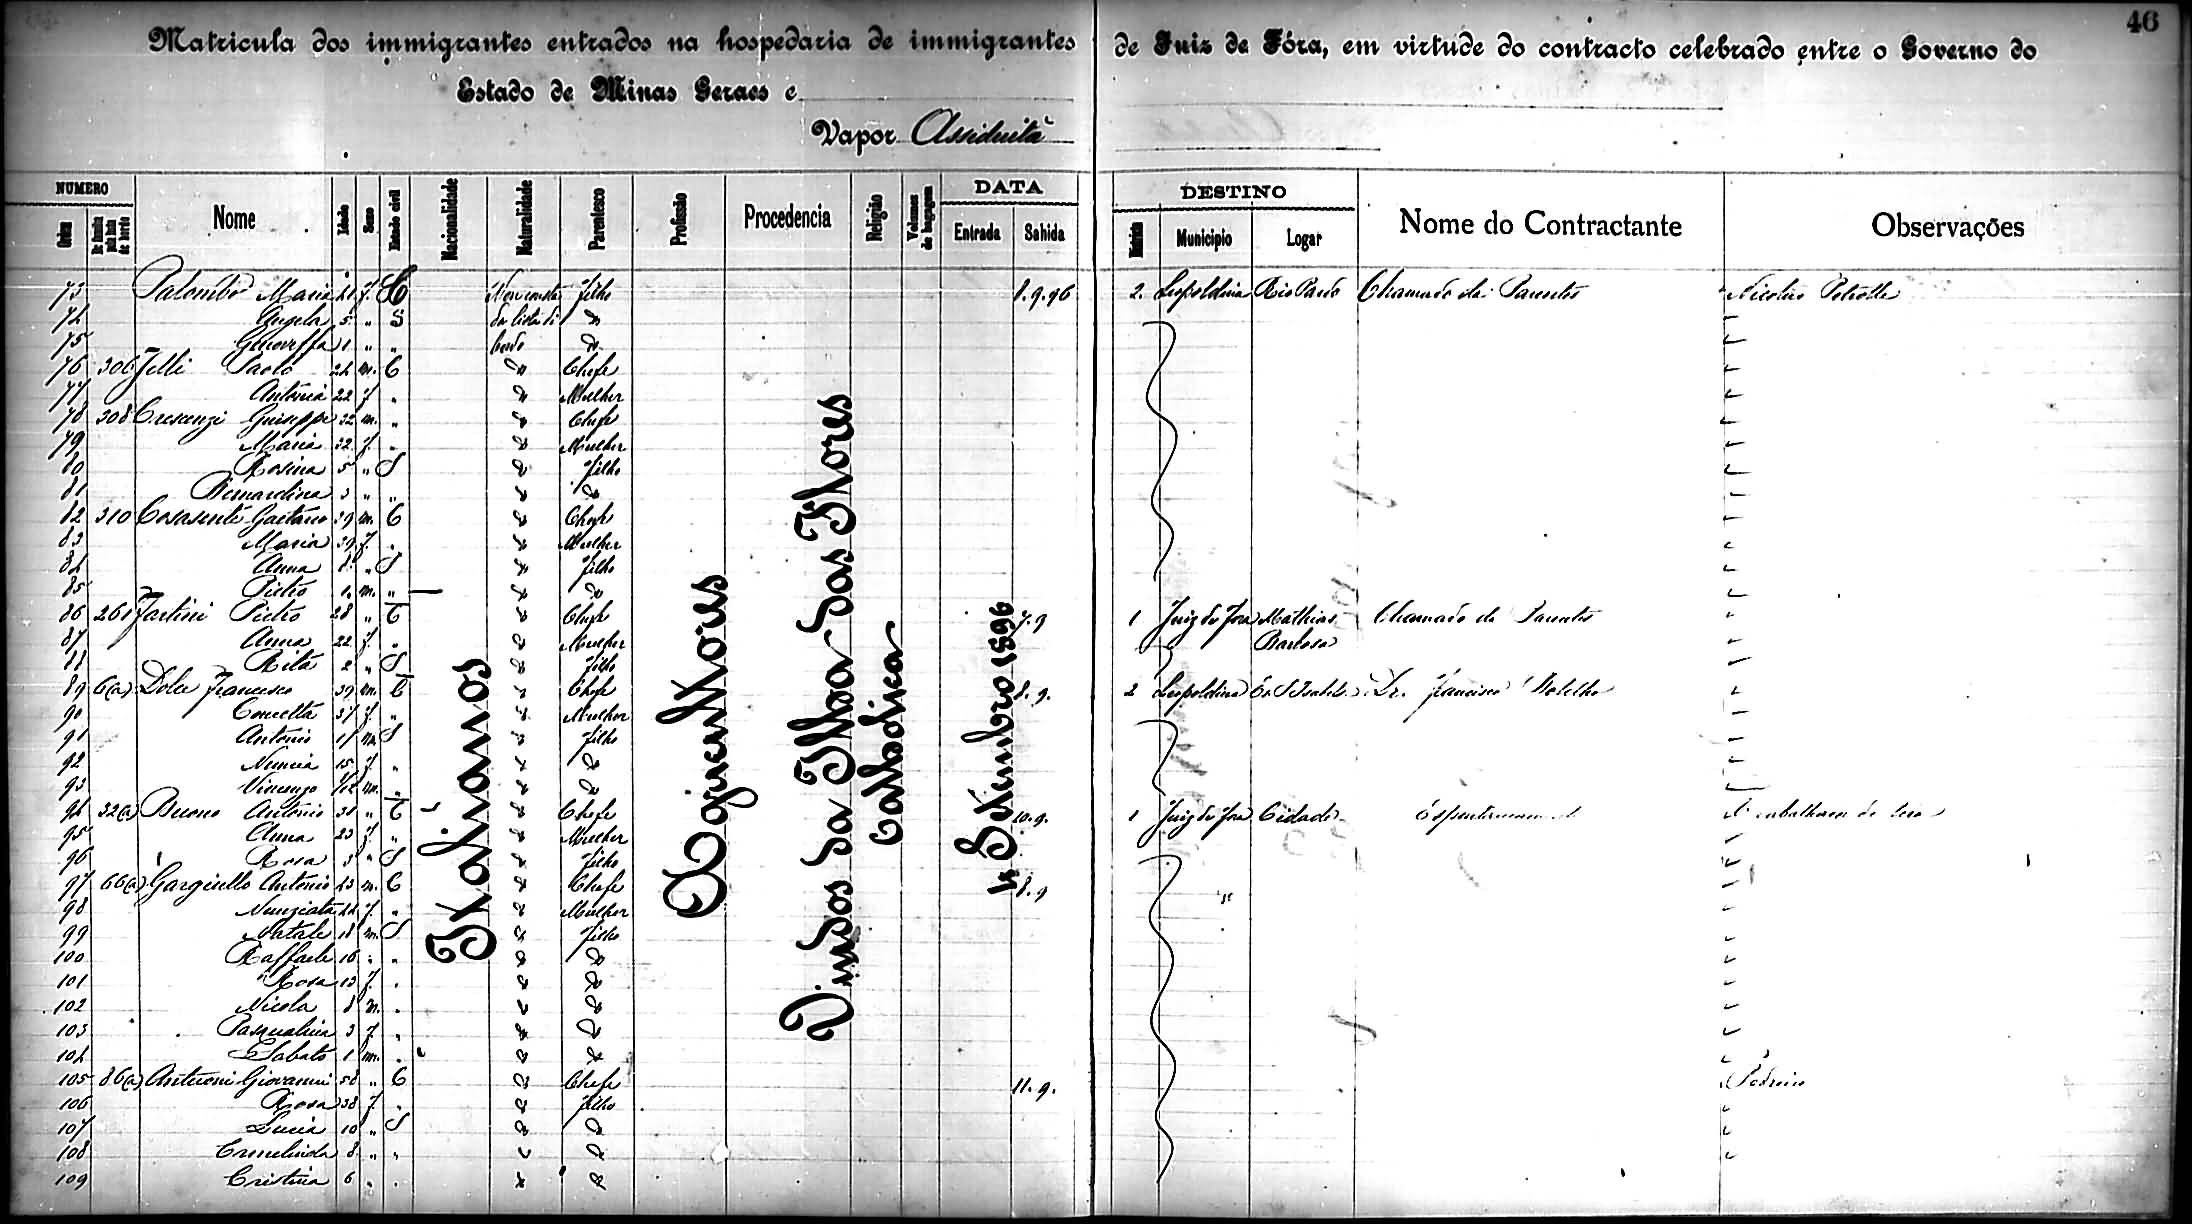 46
Matricula dos immigrantes entrados na hospedaria de immigrantes de Juiz de Fóra, em virtude do contracto celebrado entre o Governo do
Estado de Minas Geraes e
Vapor Assiduità
NUMERO
DATA
DESTINO
Ordem Nome Idade Sexo Estado civil Nacionalidade Naturalidade Parentesco Profissão Procedencia Religião Volumes de bagagem Entrada Sahida Districto Municipio Logar Nome do Contractante Observações
Italianos
Agricultores
Vindos da Ilha das Flores
Catholica
4 Setembro 1896
73 Palombo Maria 41 f. C Non consta filho 8.9.96 2. Leopoldina Rio Pardo Chamado de Parentes
74 Angela 5 " S da lista di "
75 1 " " bordo "
76 306 Felli Paolo 24 m. C " Chefe
77 Antonia 22 f " " Mulher
78 308 Crescenzi Giuseppe 32 m. " " Chefe
79 Maria 32 f. " " Mulher
80 Rosina 5 " S " filho
81 Bernardina 3 " " " "
82 310 Gaetano 39 m. C " Chefe
83 Maria 39 f. " " Mulher
84 Anna 8 " S " filho
85 Pietro 1 m. " " "
86 261 Pietro 28 " C " Chefe 7.9 1 Juiz de Fora Mathias Chamado de Parentes
87 Anna 22 f. " " Mulher Barbosa
88 Rita 2 " S " filho
89 6(a) Dolce Francesco 39 m. C " Chefe 8.9. 2 Leopoldina Dr. Francisco Botelho
90 Concetta 37 f. " " Mulher
91 Antonio 17 m. S " filho
92 Nuncia 15 f. " " "
93 Vincenzo 1/12 m. " " "
94 32(a) Buono Antonio 31 " C " Chefe 10.9. 1 Juiz de Fora Cidade
95 Anna 23 f. " " Mulher
96 Rosa 3 " S " filho
97 66(a) Gargiullo Antonio 43 m. C " Chefe 8.9
98 Nunziata 44 f. " " Mulher
99 Natale 18 m. S " filho
100 Raffaele 16 " " " "
101 Rosa 13 f. " " "
102 Nicola 8 m. " " "
103 Pasqualina 3 f. " " "
104 Sabato 1 m. " " "
105 86(a) Antuoni Giovanni 58 " C " Chefe 11.9. Pedreiro
106 Rosa 38 f. " " filho
107 Lucia 10 " S " "
108 Ermelinda 8 " " " "
109 Cristina 6 " " " "